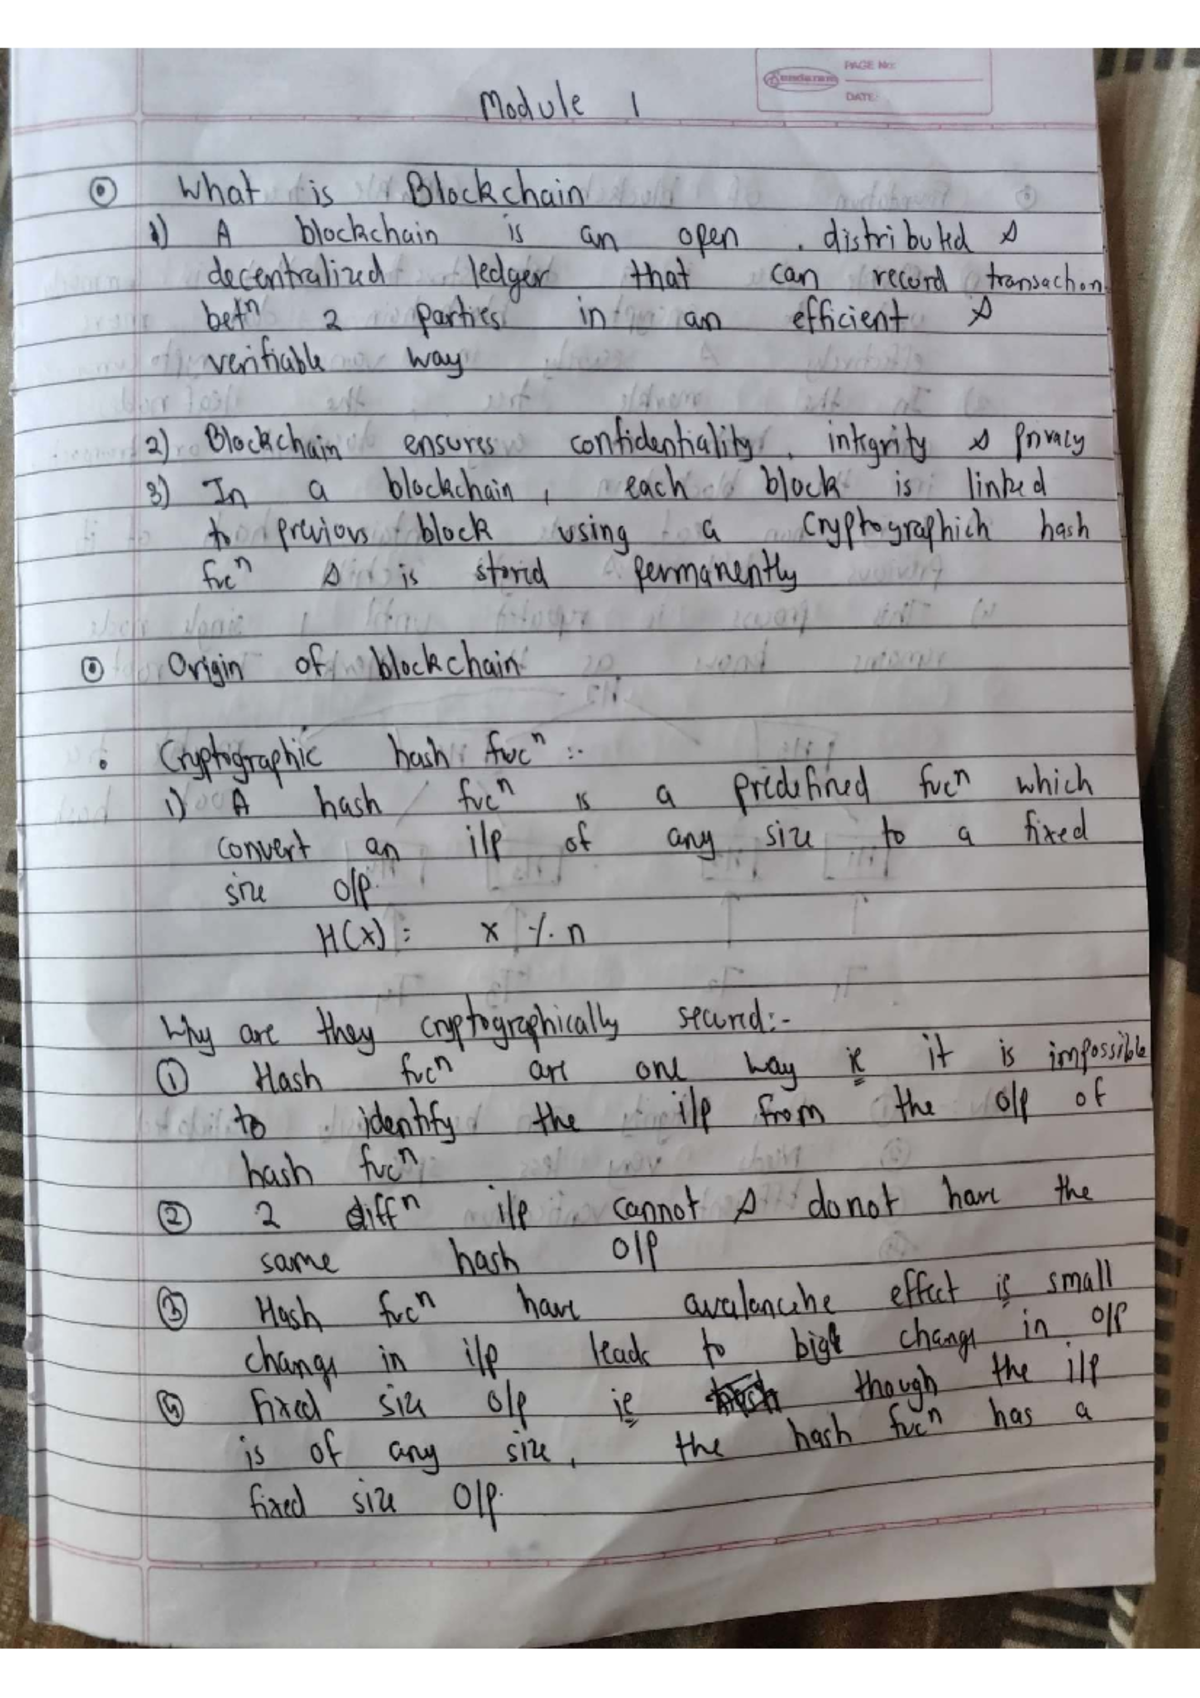 Sundaram
PAGE No:
DATE:
Module 1
What is Blockchain
1) A blockchain is an open, distributed &
decentralized ledger that can record transaction
betⁿ 2 parties in an efficient &
verifiable way
2) Blockchain ensures confidentiality, integrity & privacy
3) In a blockchain, each block is linked
to previous block using a cryptographich hash
fucⁿ & is stored permanently
Origin of blockchain
• Cryptographic hash fucⁿ :-
1) A hash fucⁿ is a predefined fucⁿ which
convert an i/p of any size to a fixed
size o/p.
H(x) = x % n
Why are they cryptographically secured:-
① Hash fucⁿ are one way ie it is impossible
to identify the i/p from the o/p of
hash fucⁿ
② 2 diffⁿ i/p cannot & do not have the
same hash o/p
③ Hash fucⁿ have avalanche effect ie small
change in i/p leads to big change in o/p
④ Fixed size o/p ie though the i/p
is of any size, the hash fucⁿ has a
fixed size o/p.